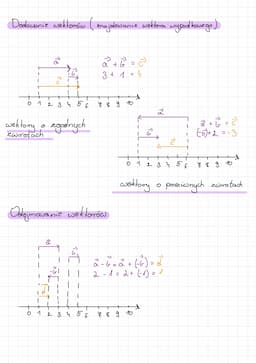 Dodawanie wektorów (znajdowanie wektora wypadkowego)
a
b
c
a + b = c
3 + 1 = 4
0 1 2 3 4 5 6 7 8 9 10
wektory o zgodnych
zwrotach
a
b
c
a + b = c
(-5) + 2 = -3
0 1 2 3 4 5 6 7 8 9 10
wektory o przeciwnych zwrotach
Odejmowanie wektorów
a
b
-b
a - b = a + (-b) = d
2 - 1 = 2 + (-1) = 1
0 1 2 3 4 5 6 7 8 9 10